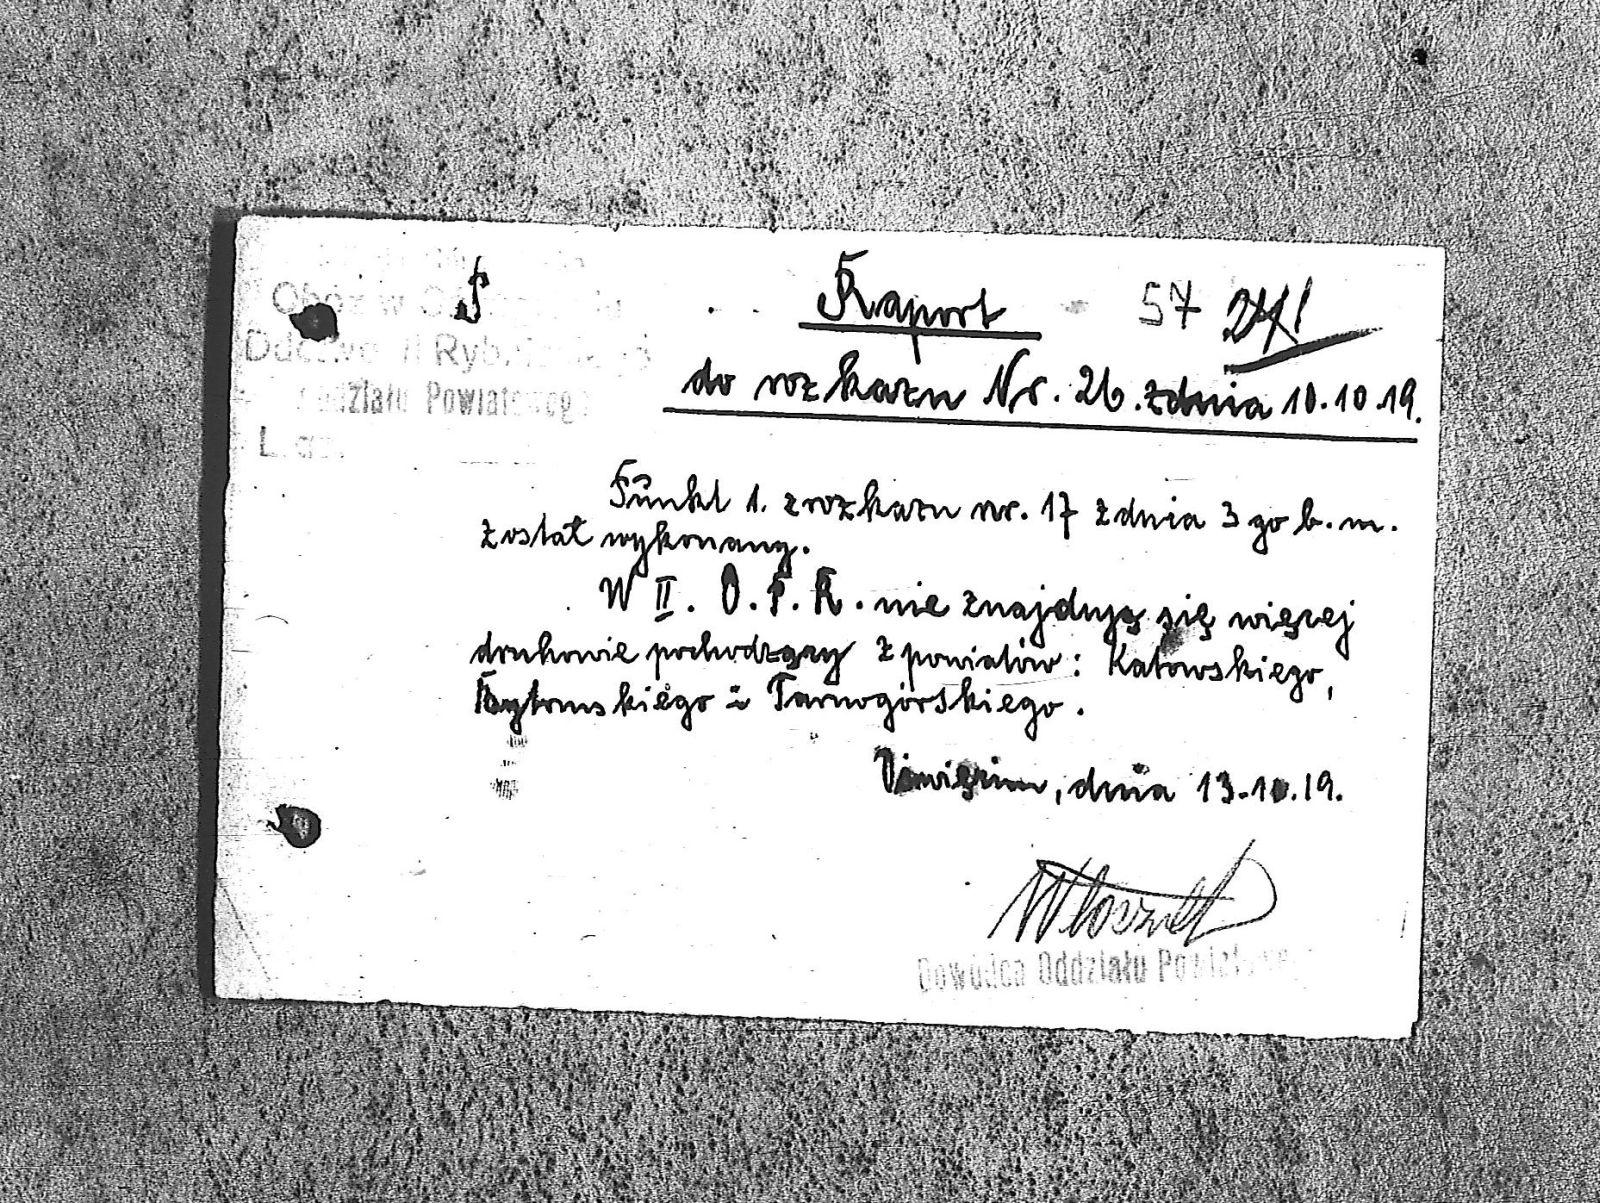 Obóz w
II Ryb.
Oddziału Powiatoweg
L.
Raport
57
do rozkazu Nr. 26. z dnia 10.10.19.
Punkt 1. z rozkazu nr. 17 z dnia 3 go b.m.
został wykonany.
W II. O.P.R. nie znajdują się więcej
druhowie pochodzący z powiatów: Katowskiego,
Bytomskiego i Tarnogórskiego.
Oświęcim, dnia 13.10.19.
Dowódca Oddziału Powiatowe